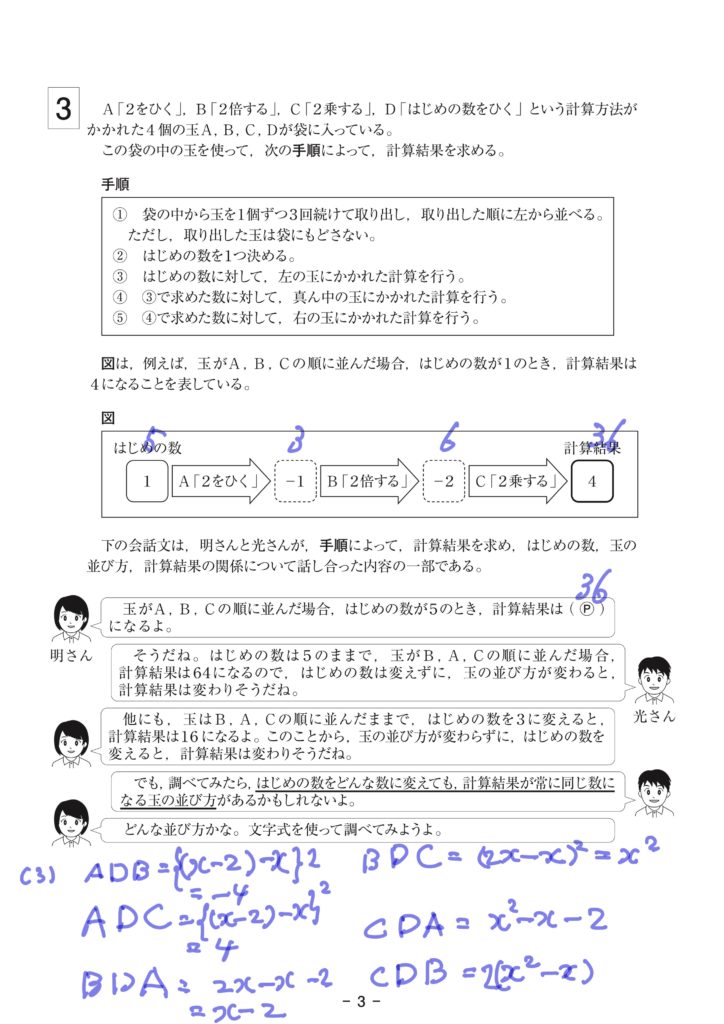 3
A「2をひく」，B「2倍する」，C「2乗する」，D「はじめの数をひく」という計算方法が
かかれた4個の玉A，B，C，Dが袋に入っている。
この袋の中の玉を使って，次の手順によって，計算結果を求める。
手順
① 袋の中から玉を1個ずつ3回続けて取り出し，取り出した順に左から並べる。
ただし，取り出した玉は袋にもどさない。
② はじめの数を1つ決める。
③ はじめの数に対して，左の玉にかかれた計算を行う。
④ ③で求めた数に対して，真ん中の玉にかかれた計算を行う。
⑤ ④で求めた数に対して，右の玉にかかれた計算を行う。
図は，例えば，玉がA，B，Cの順に並んだ場合，はじめの数が1のとき，計算結果は
4になることを表している。
図
5 3 6 36
はじめの数 計算結果
1 A「2をひく」 −1 B「2倍する」 −2 C「2乗する」 4
下の会話文は，明さんと光さんが，手順によって，計算結果を求め，はじめの数，玉の
並び方，計算結果の関係について話し合った内容の一部である。
36
玉がA，B，Cの順に並んだ場合，はじめの数が5のとき，計算結果は（Ⓟ）
になるよ。
明さん
そうだね。はじめの数は5のままで，玉がB，A，Cの順に並んだ場合，
計算結果は64になるので，はじめの数は変えずに，玉の並び方が変わると，
計算結果は変わりそうだね。
光さん
他にも，玉はB，A，Cの順に並んだままで，はじめの数を3に変えると，
計算結果は16になるよ。このことから，玉の並び方が変わらずに，はじめの数を
変えると，計算結果は変わりそうだね。
でも，調べてみたら，はじめの数をどんな数に変えても，計算結果が常に同じ数に
なる玉の並び方があるかもしれないよ。
どんな並び方かな。文字式を使って調べてみようよ。
(3) ADB={(x−2)−x}2 BDC=(2x−x)²=x²
=−4
ADC={(x−2)−x}² CDA=x²−x−2
=4
BDA=2x−x−2 CDB=2(x²−x)
=x−2
− 3 −